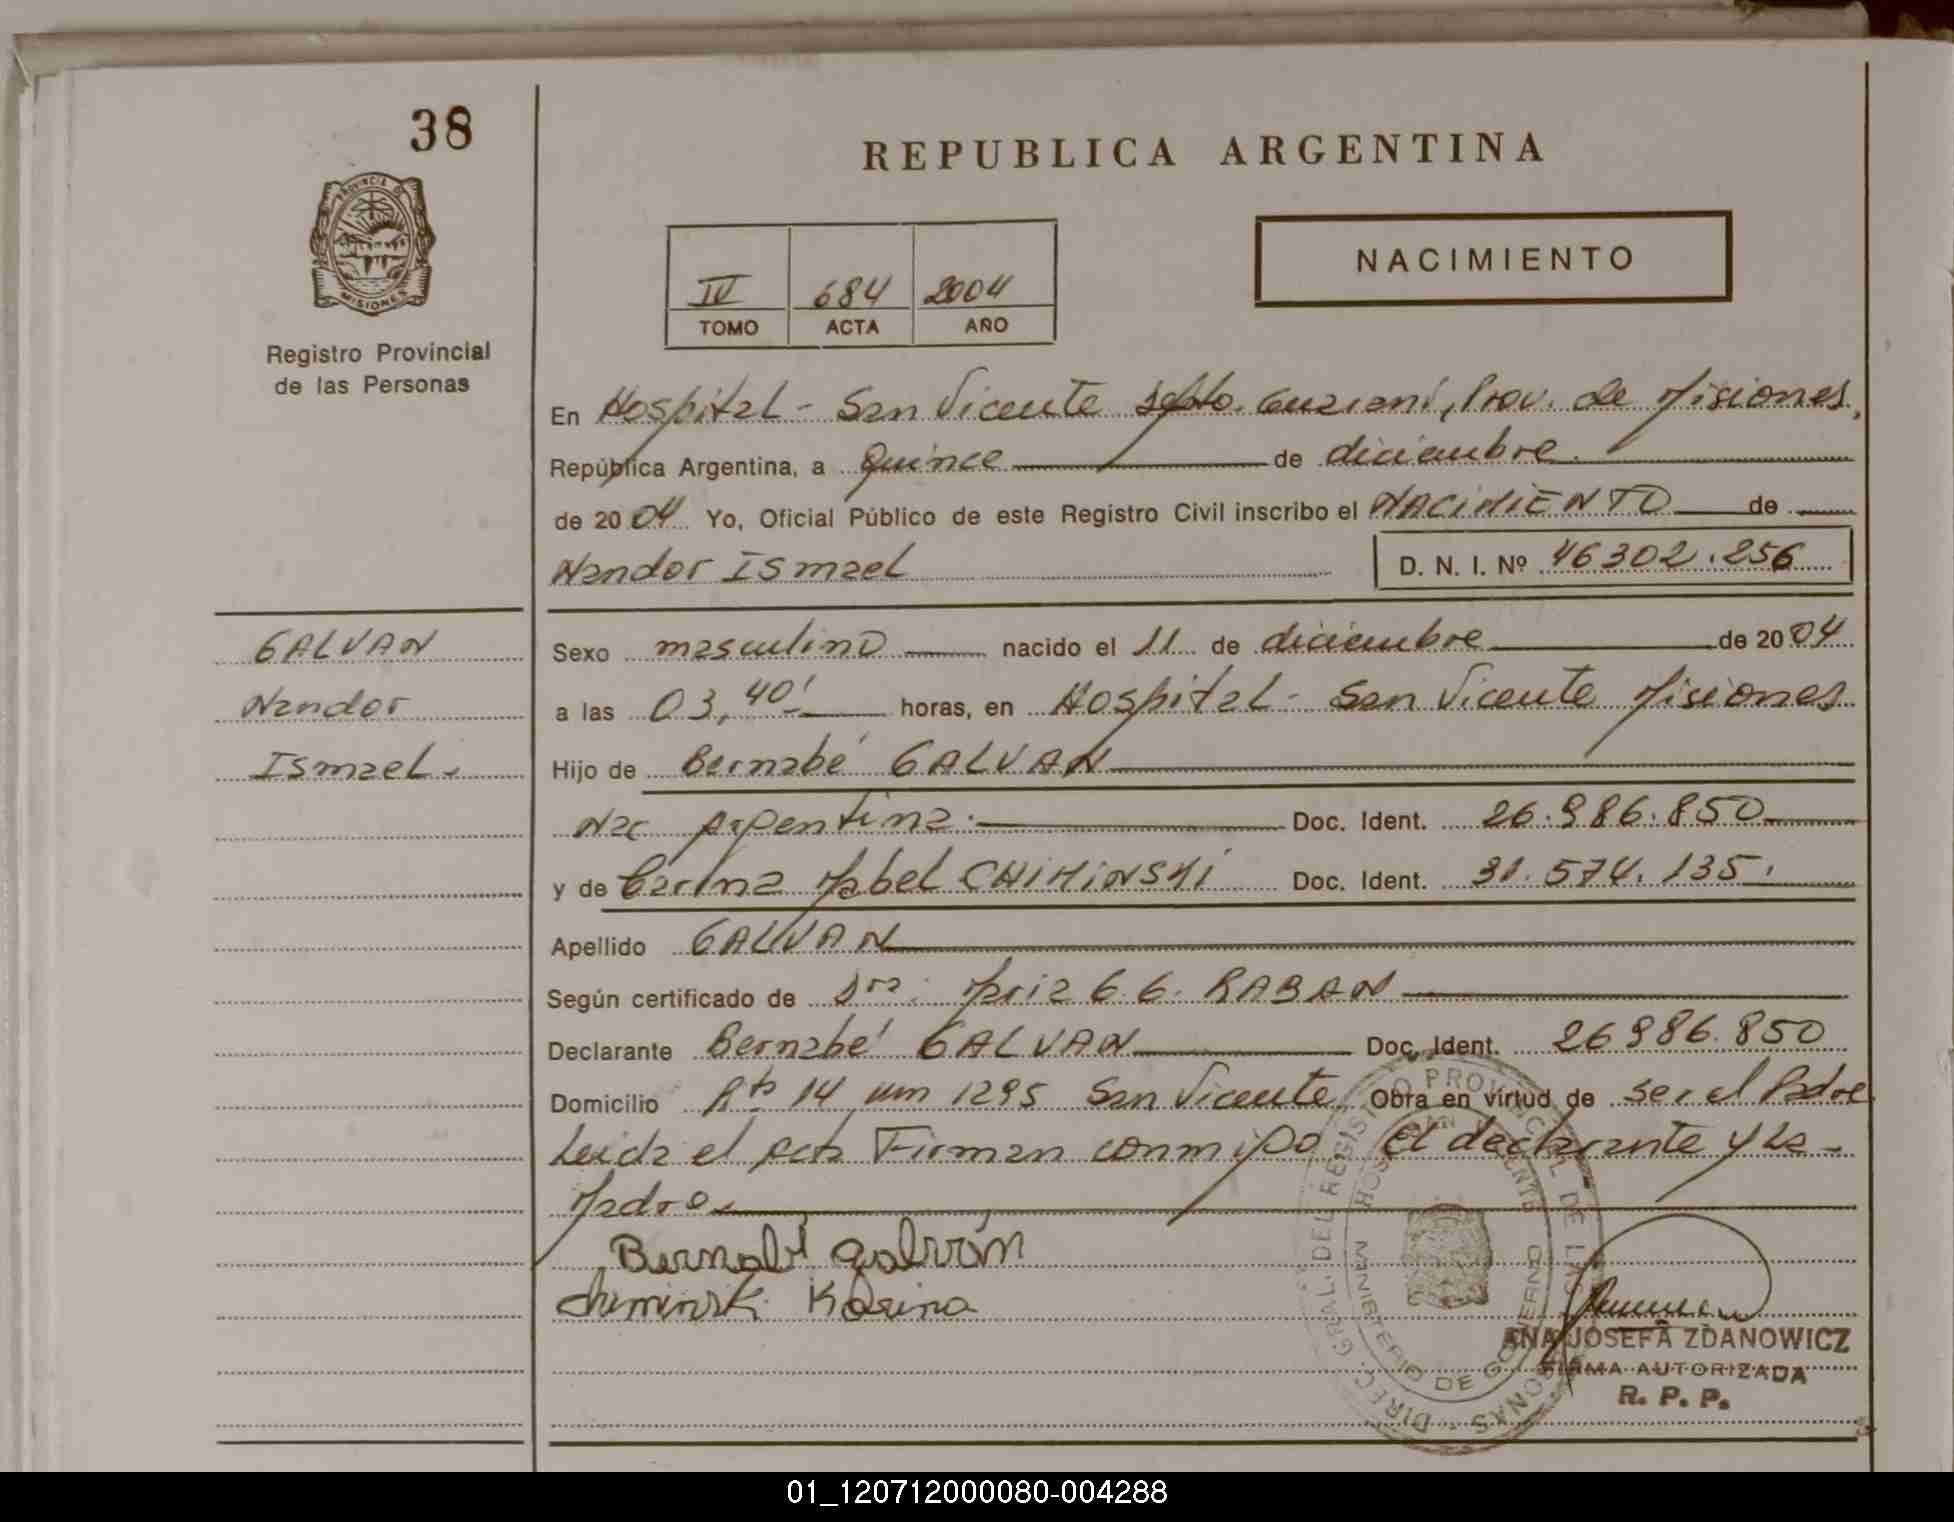 38
REPUBLICA ARGENTINA
PROVINCIA D
MISIONES
Registro Provincial
de las Personas
NACIMIENTO
IV 684 2004
TOMO ACTA AÑO
En Hospital - San Vicente Dpto. Guaraní, Prov. de Misiones,
República Argentina, a Quince de diciembre.
de 2004 Yo, Oficial Público de este Registro Civil inscribo el NACIMIENTO de
Nandor Ismael D. N. I. Nº 46302.256
GALVAN
Nandor
Ismael.
Sexo masculino nacido el 11 de diciembre de 2004
a las 03,40' horas, en Hospital - San Vicente Misiones
Hijo de Bernabé GALVAN
Nac Argentina. Doc. Ident. 26.986.850
y de Carina Mabel CHIMINSKI Doc. Ident. 31.574.135.
Apellido GALVAN
Según certificado de Dra. Maria G. G. RABAN
Declarante Bernabé GALVAN Doc. Ident. 26986.850
Domicilio Rta 14 km 1295 San Vicente Obra en virtud de ser el Padre
Leida el acta Firman conmigo el declarante y la
Madre.
Bernabé galván
chiminski Karina
DIREC. GRAL. DEL REGISTRO PROVINCIAL DE LAS PERSONAS
MINISTERIO DE GOBIERNO
HOSP. SAN VICENTE
ANA JOSEFA ZDANOWICZ
FIRMA AUTORIZADA
R. P. P.
01_120712000080-004288